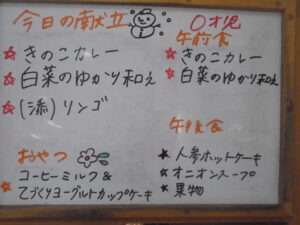 今日の献立
☆きのこカレー
☆白菜のゆかり和え
☆(添)リンゴ
おやつ
コーヒーミルク&
☆てづくりヨーグルトカップケーキ
0才児
午前食
☆きのこカレー
☆白菜のゆかり和え
午後食
★人参ホットケーキ
★オニオンスープ
★果物